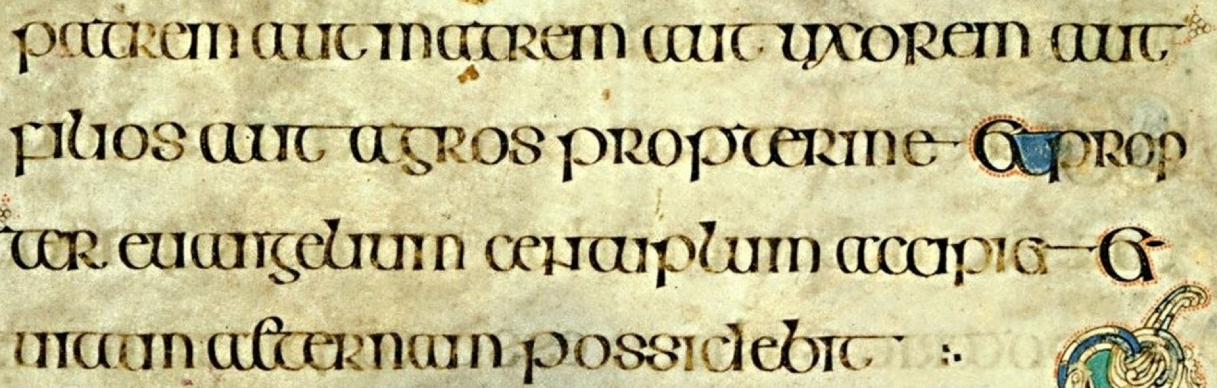 patrem aut matrem aut uxorem aut
filios aut agros propter me et prop
ter euangelium centuplum accipiet et
uitam aeternam possidebit :.